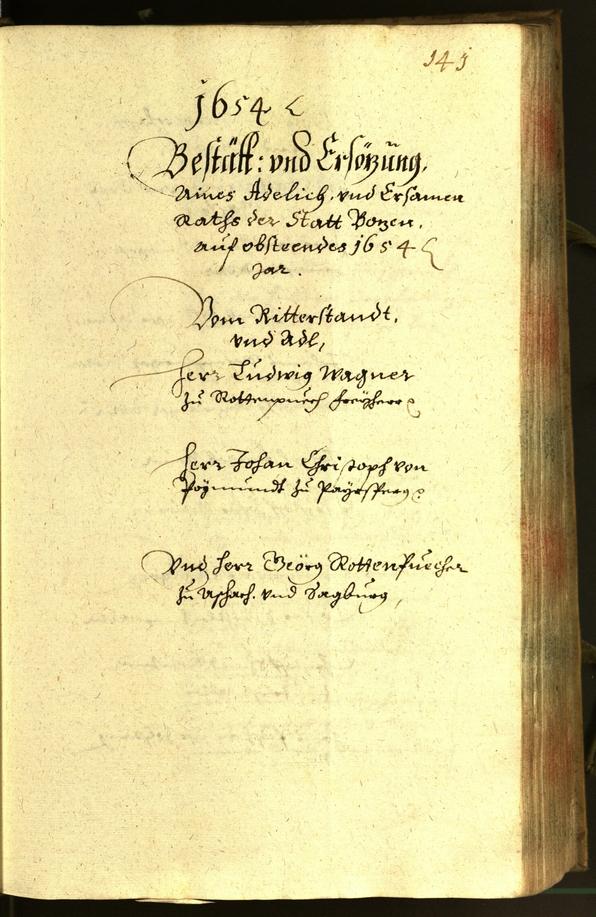 141
1654
Bestätt: vnd Ersözung,
Aines Adelich. vnd Ersamen
Raths der Statt Bozen,
auf obsteendes 1654
Jar.
Vom Ritterstandt,
vnd Adl,
Herr Ludwig Wagner
zu Rottenpuech freyherr
Herr Johan Christoph von
Poymundt zu Payrsperg
Vnd Herr Geörg Rottenpuecher
zu Aschach. vnd Sagburg,